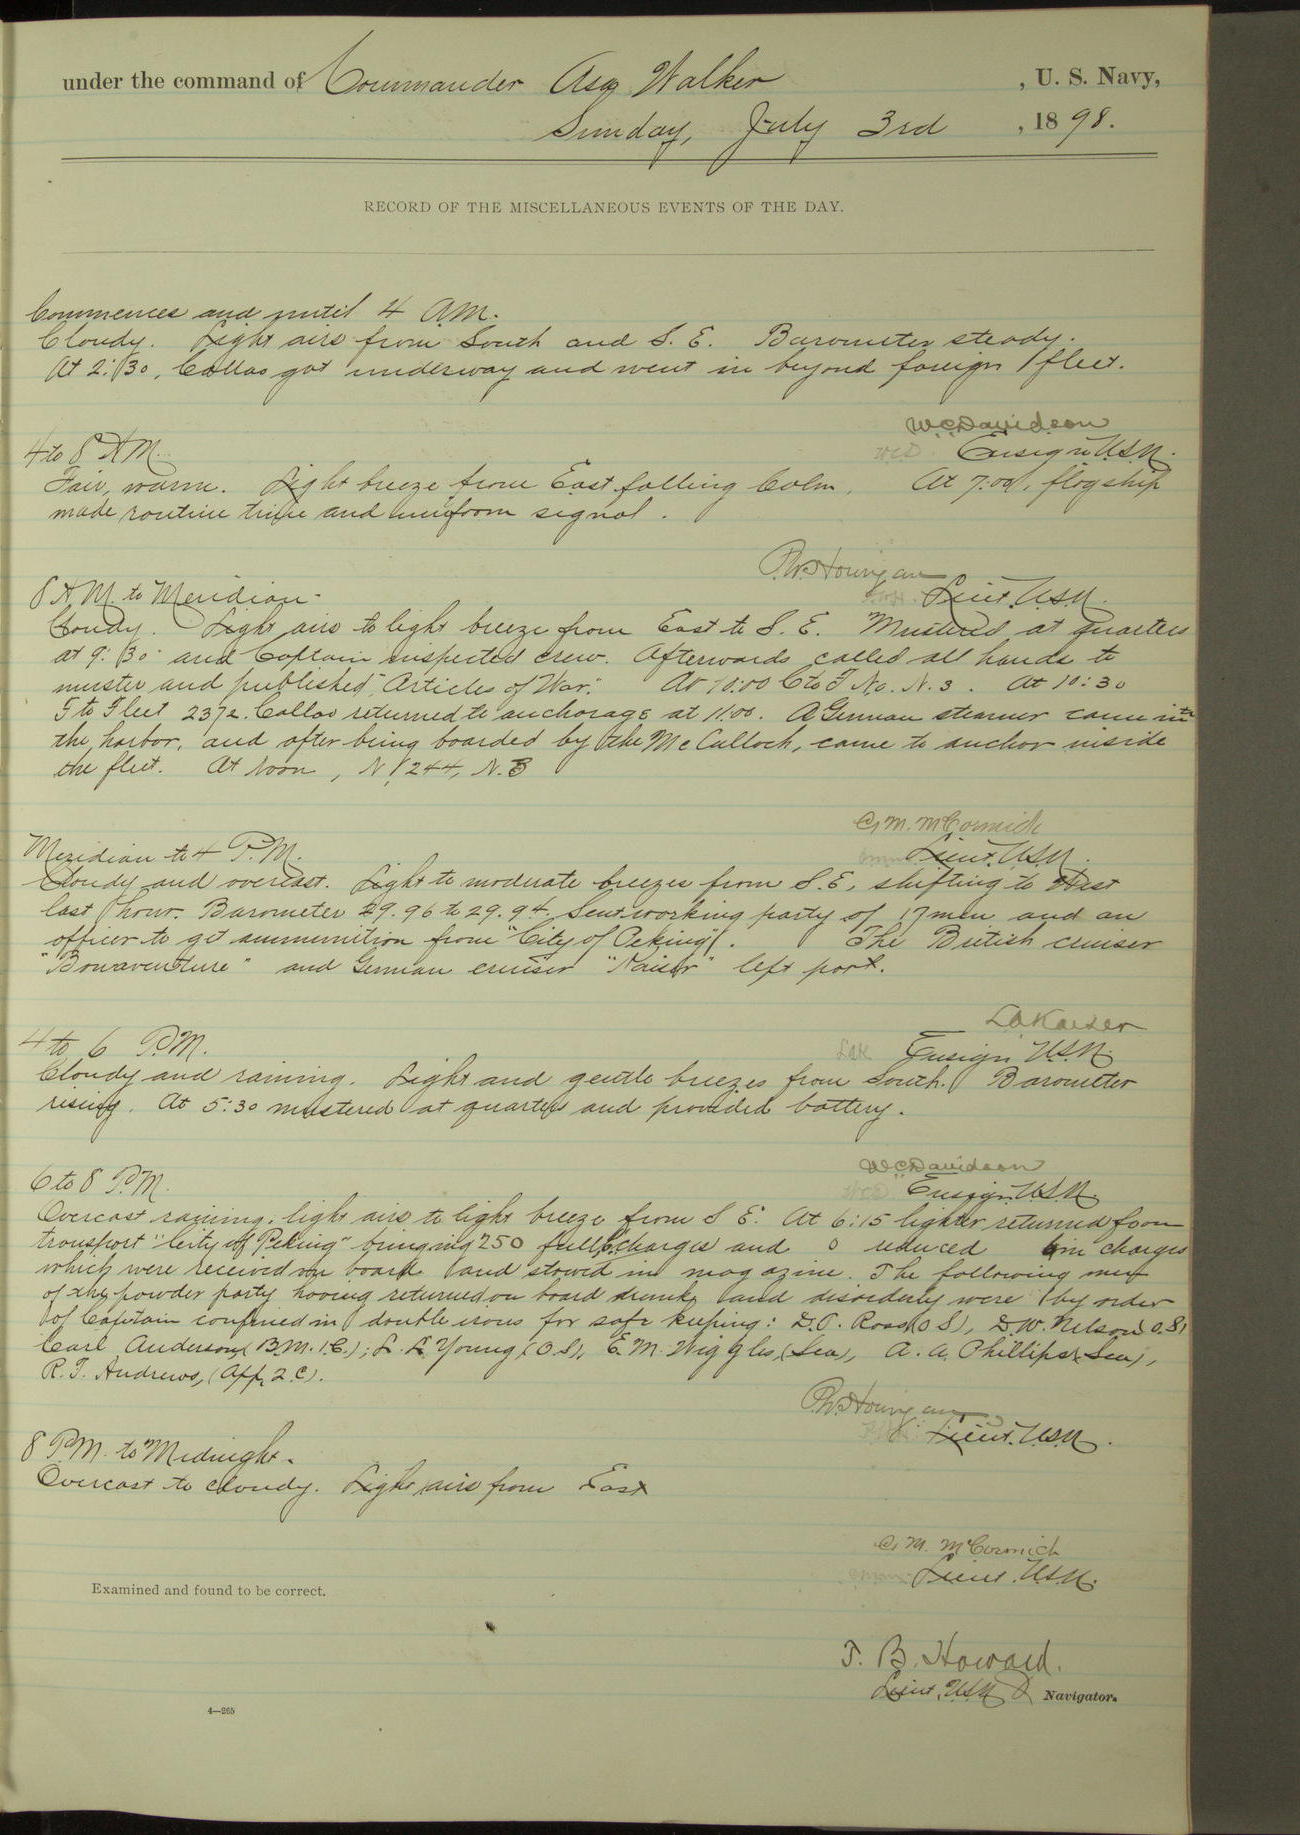 under the command of Commander Asa Walker , U. S. Navy,
Sunday, July 3rd , 1898.
RECORD OF THE MISCELLANEOUS EVENTS OF THE DAY.
Commences and until 4 A.M.
Cloudy. Light airs from South and S. E. Barometer steady.
At 2:30, Callao got underway and went in beyond foreign fleet.
W C Davidson
4 to 8 A M. Ensign U.S.N.
Fair, warm. Light breeze from East falling Calm. At 7:00, flagship
made routine time and uniform signal.
P. W. Hourigan
8 A.M. to Meridian- Lieut. U.S.N.
Cloudy. Light airs to light breeze from East to S. E. Mustered at quarters
at 9:30 and Captain inspected crew. Afterwards called all hands to
muster and published "Articles of War." At 10:00 C to F No. N. 3. At 10:30
F to Fleet 237 Callao returned to anchorage at 11:00. A German steamer came into
the harbor, and after being boarded by the McCulloch, came to anchor inside
the fleet. At Noon, N 244, N.
C, M. McCormick
Meridian to 4 P.M. Lieut. U.S.N.
Cloudy and overcast. Light to moderate breezes from S.E, shifting to West
last hour. Barometer 29.96 to 29.94. Sent working party of 17 men and an
officer to get ammunition from "City of Peking". The British cruiser
"Bonaventure" and German cruiser "Kaiser" left port.
L A Kaiser
4 to 6 P.M. LAK Ensign U.S.N.
Cloudy and raining. Light and gentle breezes from South. Barometer
rising. At 5:30 mustered at quarters and provided battery.
W C Davidson
6 to 8 P.M. Ensign U.S.N.
Overcast raining. light airs to light breeze from S E. At 6:15 lighter returned from
transport "City of Peking" bringing 250 full charges and 0 reduced 6 in charges
which were received on board and stowed in magazine. The following men
of the powder party having returned on board drunk and disorderly were by order
of Captain confined in double irons for safe keeping: D.O. Ross (O S), D.W. Nelson O.S)
Carl Anderson (B.M. 1.C.); L. L. Young (O.S), E. M. Wiggles (Sea), A. A. Phillips (Sea),
R. T. Andrews, (App, 2 C).
P. W. Hourigan
8 P.M. to Midnight. Lieut. U.S.N.
Overcast to cloudy. Light airs from East
C, M. McCormick
Lieut. U.S.N.
Examined and found to be correct.
T. B. Howard.
Lieut, U.S.N Navigator.
4—265